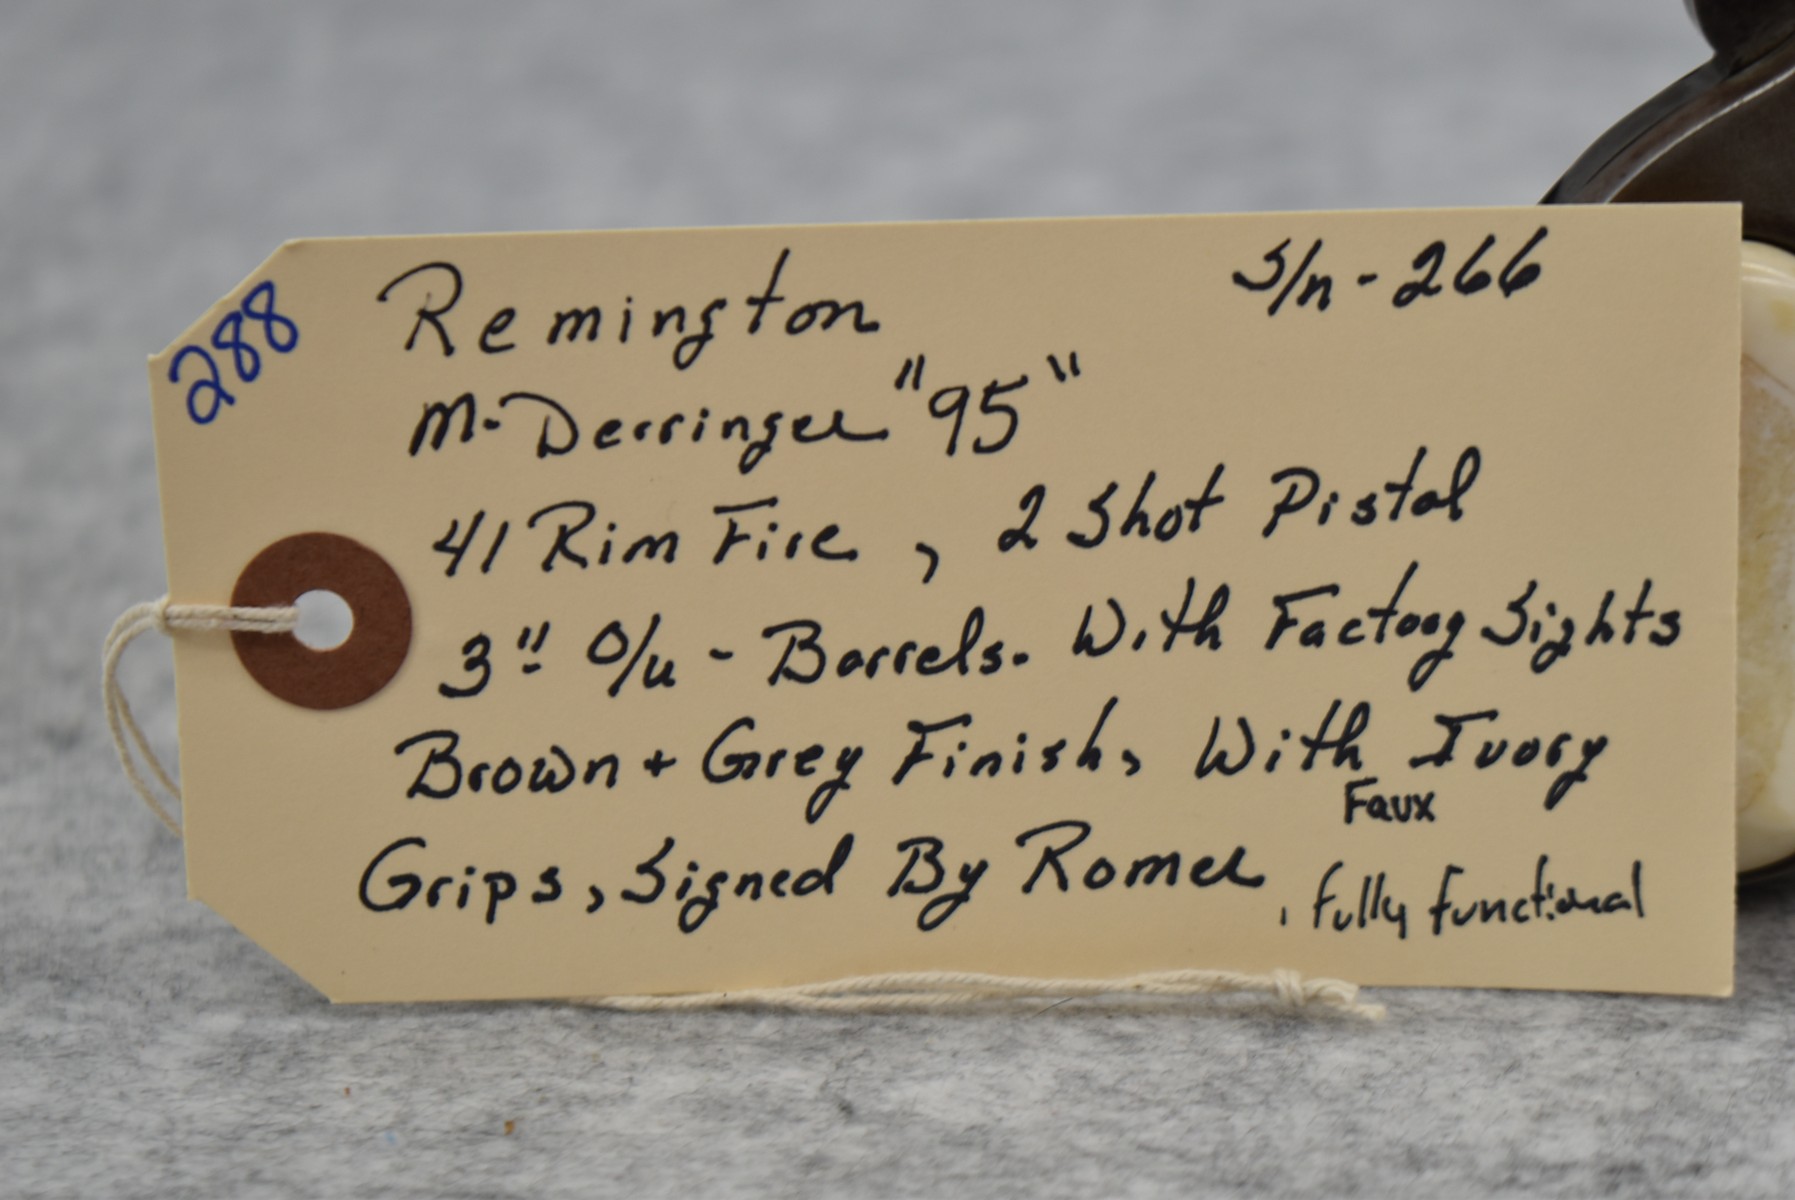 288
Remington S/n - 266
M- Derringer "95"
41 Rim Fire, 2 Shot Pistol
3" O/u - Barrels. With Factory Sights
Brown + Grey Finish, With Ivory
Faux
Grips, Signed By Romer, fully functional